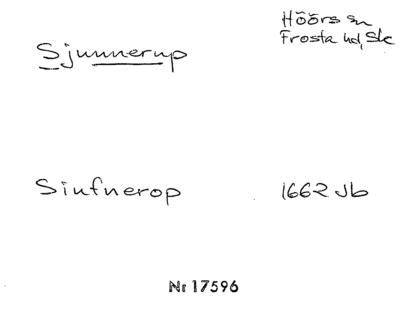 Höörs sn
Sjunnerup
Frosta hd, Sk
Siufnerop
1662 Jb
Nr 17596